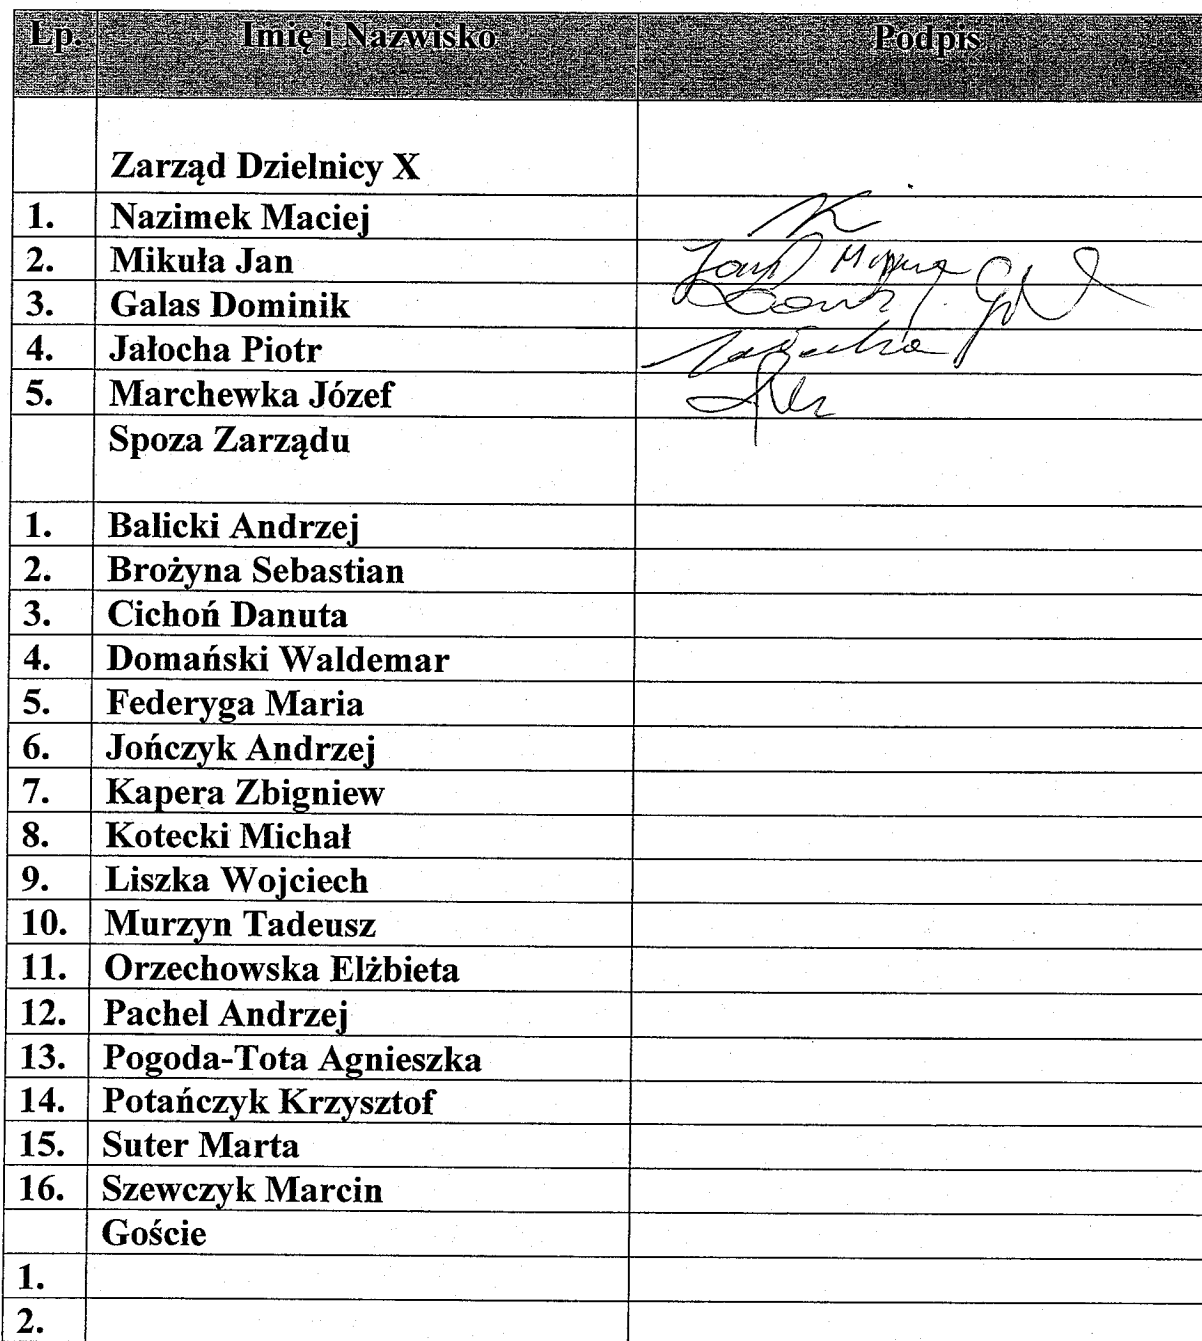 Lp. Imię i Nazwisko Podpis
Zarząd Dzielnicy X
1. Nazimek Maciej
2. Mikuła Jan
3. Galas Dominik
4. Jałocha Piotr
5. Marchewka Józef
Spoza Zarządu
1. Balicki Andrzej
2. Brożyna Sebastian
3. Cichoń Danuta
4. Domański Waldemar
5. Federyga Maria
6. Jończyk Andrzej
7. Kapera Zbigniew
8. Kotecki Michał
9. Liszka Wojciech
10. Murzyn Tadeusz
11. Orzechowska Elżbieta
12. Pachel Andrzej
13. Pogoda-Tota Agnieszka
14. Potańczyk Krzysztof
15. Suter Marta
16. Szewczyk Marcin
Goście
1.
2.